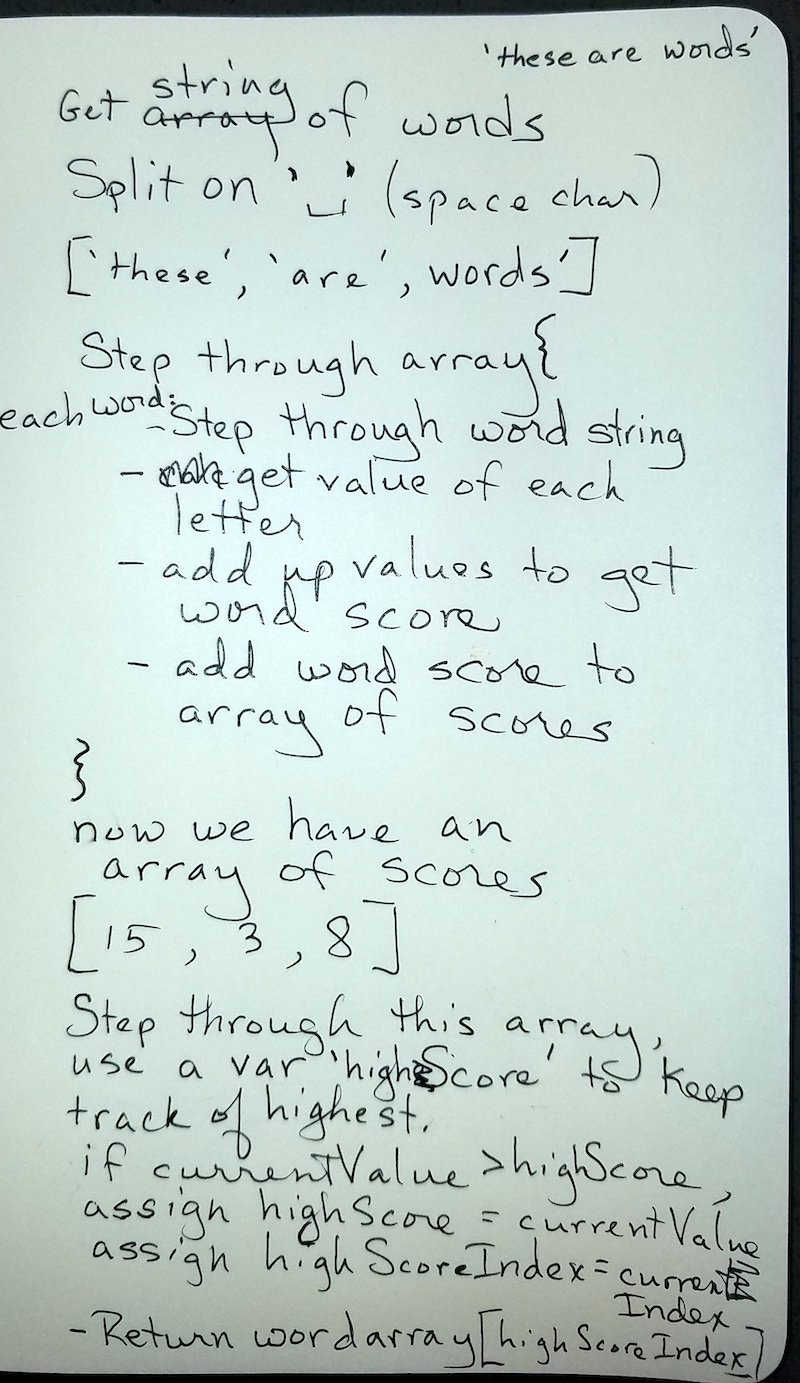 'these are words'
string
Get array of words
Split on '␣' (space char)
['these', 'are', words']
Step through array{
each word:
- Step through word string
- get value of each
letter
- add up values to get
word score
- add word score to
array of scores
}
now we have an
array of scores
[15, 3, 8]
Step through this array,
use a var 'highScore' to keep
track of highest.
if currentValue > highScore,
assign highScore = currentValue
assign highScoreIndex = current
Index
- Return wordarray[highScoreIndex]